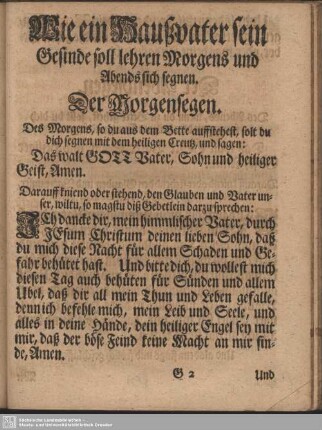 Wie ein Haußvater sein
Gesinde soll lehren Morgens und
Abends sich segnen.
Der Morgensegen.
Des Morgens, so du aus dem Bette auffstehest, solt du
dich segnen mit dem heiligen Creutz, und sagen:
Das walt GOTT Vater, Sohn und heiliger
Geist, Amen.
Darauff kniend oder stehend, den Glauben und Vater un-
ser, wiltu, so magstu diß Gebetlein darzu sprechen:
ICh dancke dir, mein himmlischer Vater, durch
JEsum Christum deinen lieben Sohn, daß
du mich diese Nacht für allem Schaden und Ge-
fahr behütet hast. Und bitte dich, du wollest mich
diesen Tag auch behüten für Sünden und allem
Ubel, daß dir all mein Thun und Leben gefalle,
denn ich befehle mich, mein Leib und Seele, und
alles in deine Hände, dein heiliger Engel sey mit
mir, daß der böse Feind keine Macht an mir fin-
de, Amen.
G 2 Und